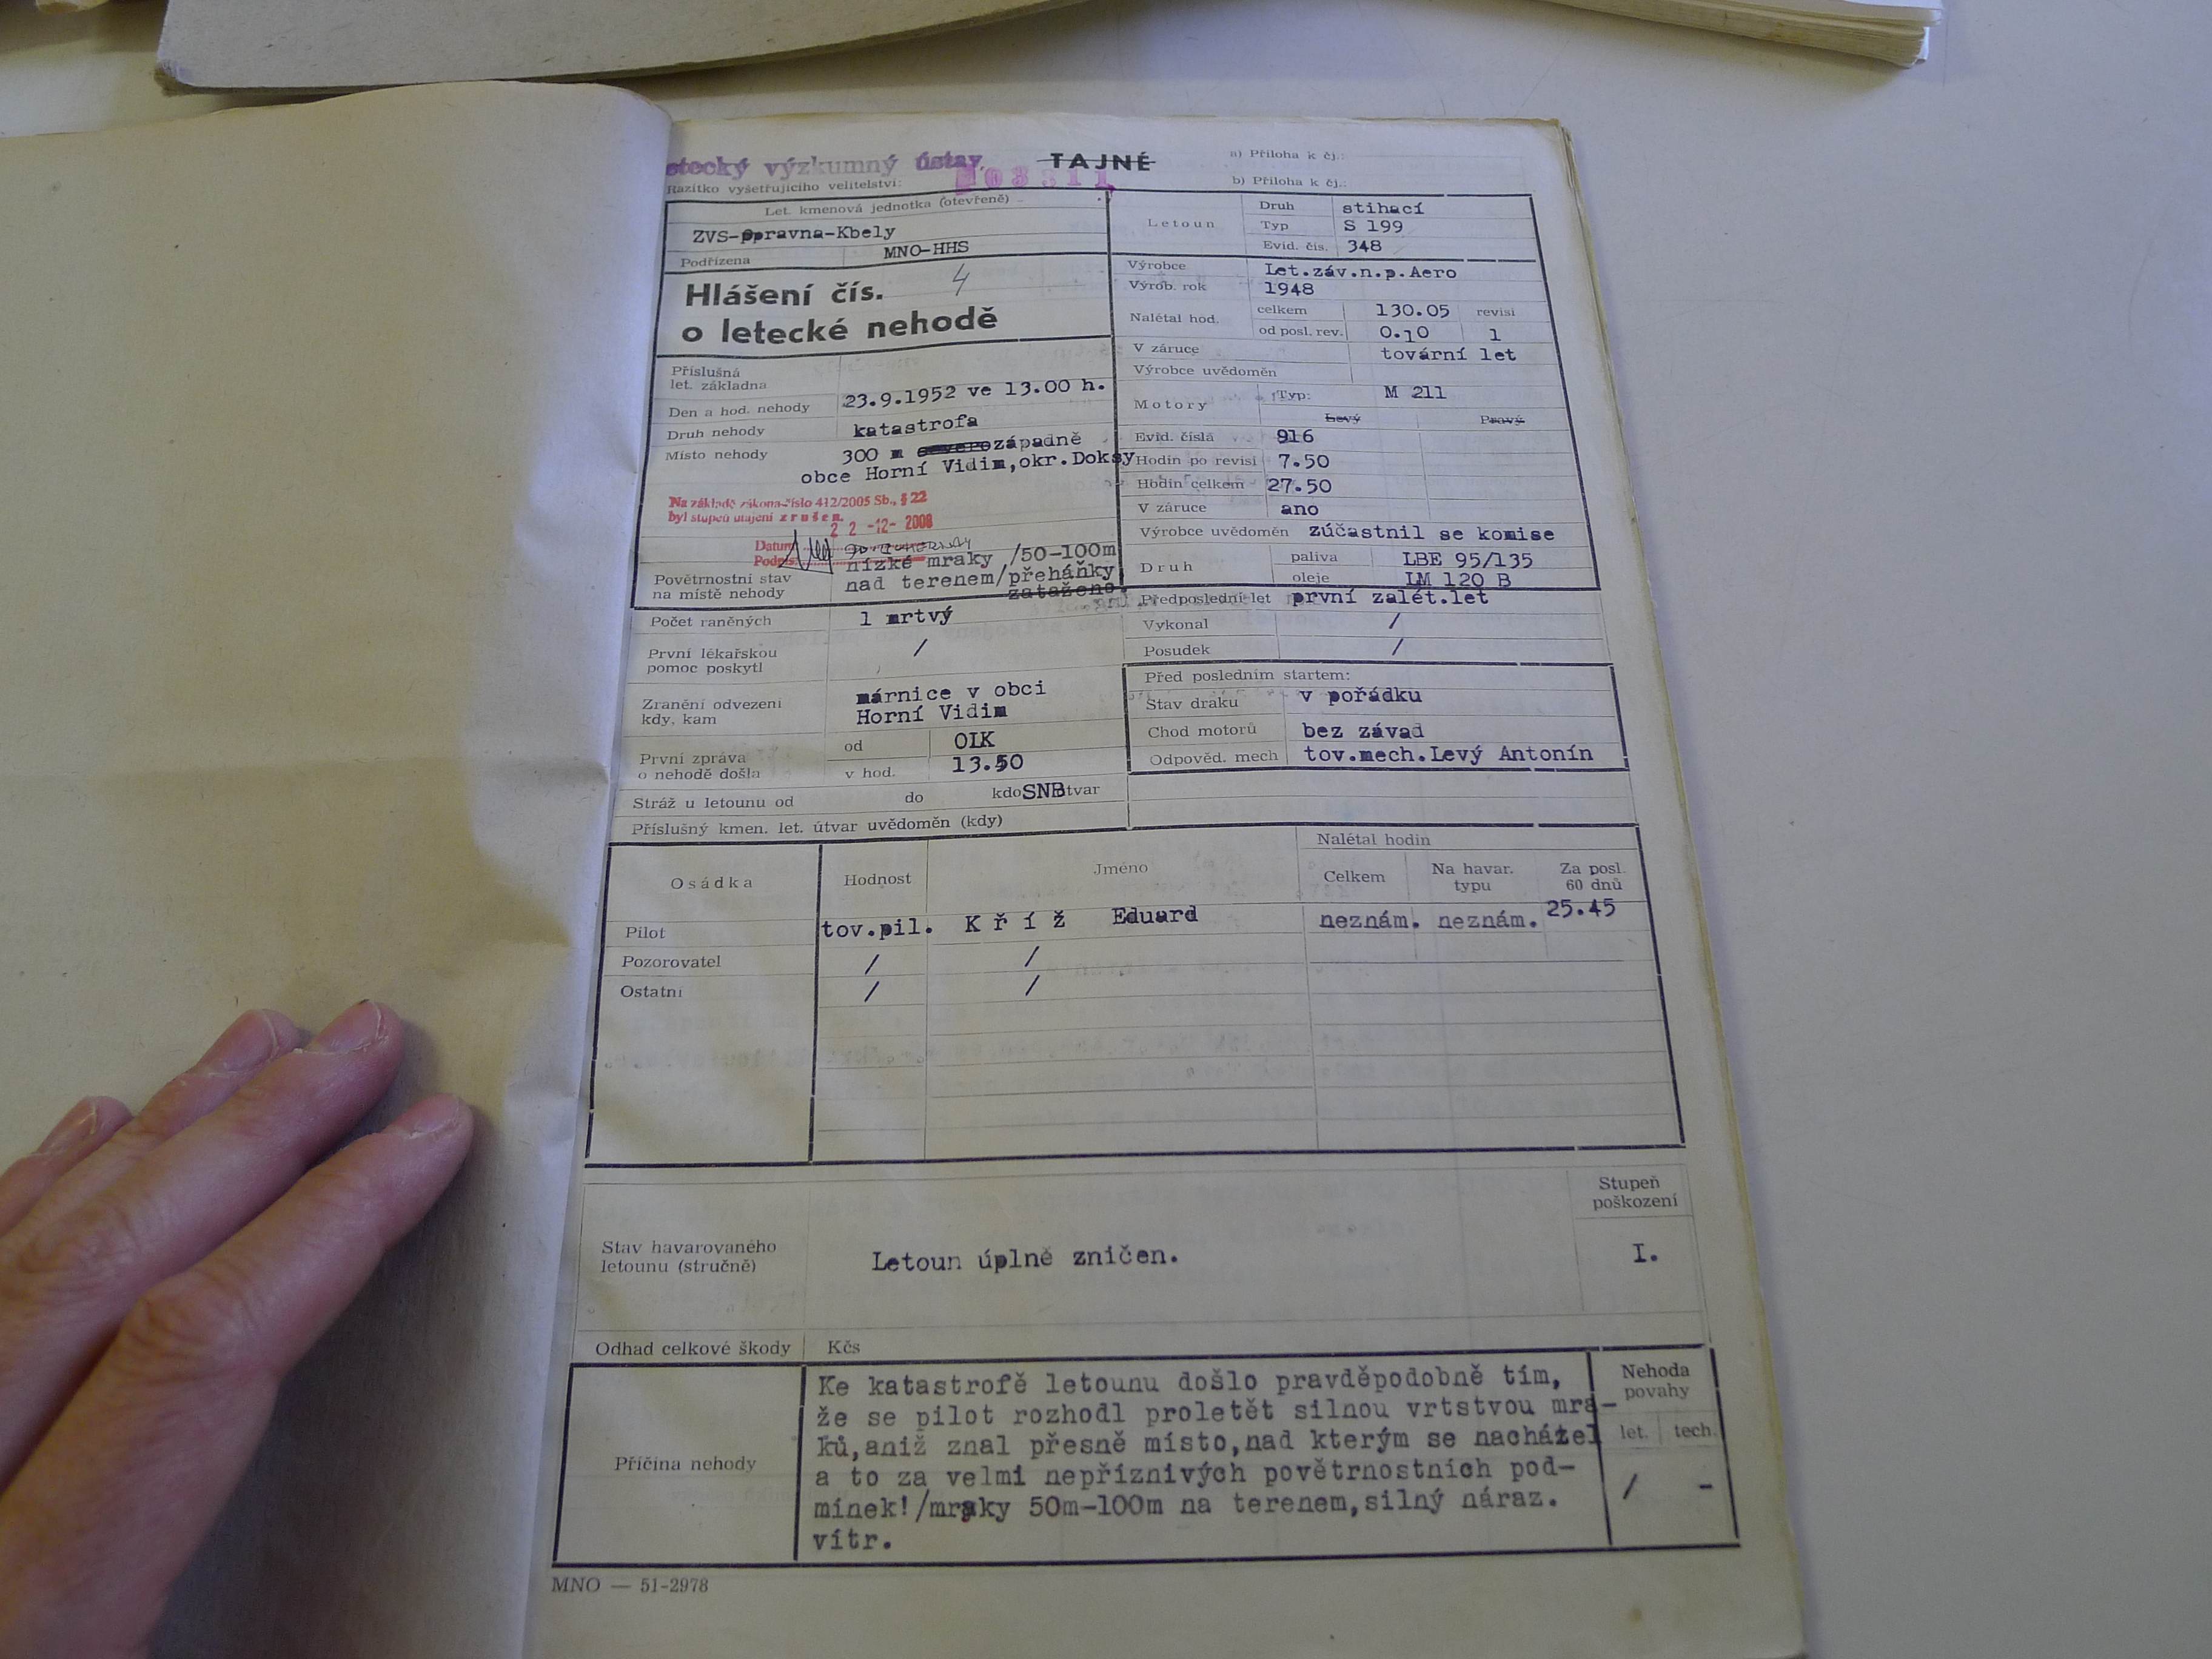 etecký výzkumný ústav,
TAJNÉ
a) Příloha k čj.:
Razítko vyšetřujícího velitelství:
b) Příloha k čj.:
Let. kmenová jednotka (otevřeně)
ZVS-opravna-Kbely
Podřízena MNO-HHS
Letoun
Druh stihací
Typ S 199
Evid. čís. 348
Hlášení čís. 4
o letecké nehodě
Výrobce Let.záv.n.p.Aero
Výrob. rok 1948
Nalétal hod. celkem 130.05 revisí
od posl. rev. 0.10 1
V záruce tovární let
Výrobce uvědoměn
Příslušná
let. základna
Den a hod. nehody 23.9.1952 ve 13.00 h.
Druh nehody katastrofa
Místo nehody 300 m severozápadně
obce Horní Vidim,okr.Doksy
Motory Typ: M 211
Levý Pravý
Evid. čísla 916
Hodin po revisi 7.50
Hodin celkem 27.50
V záruce ano
Výrobce uvědoměn zúčastnil se komise
Druh paliva LBE 95/135
oleje LM 120 B
Na základě zákona číslo 412/2005 Sb., § 22
byl stupeň utajení zrušen.
Datum 22 -12- 2008
Podpis:
Povětrnostní stav
na místě nehody
nízké mraky /50-100m
nad terenem/přeháňky
zataženo.
Počet raněných 1 mrtvý
První lékařskou
pomoc poskytl /
Zranění odvezeni
kdy, kam
márnice v obci
Horní Vidim
První zpráva
o nehodě došla
od OLK
v hod. 13.50
Stráž u letounu od do kdo SNB útvar
Příslušný kmen. let. útvar uvědoměn (kdy)
Předposlední let první zalét.let
Vykonal /
Posudek /
Před posledním startem:
Stav draku v pořádku
Chod motorů bez závad
Odpověd. mech tov.mech.Levý Antonín
Osádka Hodnost Jméno Nalétal hodin
Celkem Na havar. typu Za posl. 60 dnů
Pilot tov.pil. Kříž Eduard neznám. neznám. 25.45
Pozorovatel / /
Ostatní / /
Stupeň
poškození
Stav havarovaného
letounu (stručně)
Letoun úplně zničen.
I.
Odhad celkové škody Kčs
Příčina nehody
Ke katastrofě letounu došlo pravděpodobně tím,
že se pilot rozhodl proletět silnou vrtstvou mra-
ků,aniž znal přesně místo,nad kterým se nacházel
a to za velmi nepříznivých povětrnostních pod-
mínek!/mraky 50m-100m na terenem,silný náraz.
vítr.
Nehoda
povahy
let. tech.
/ -
MNO — 51-2978